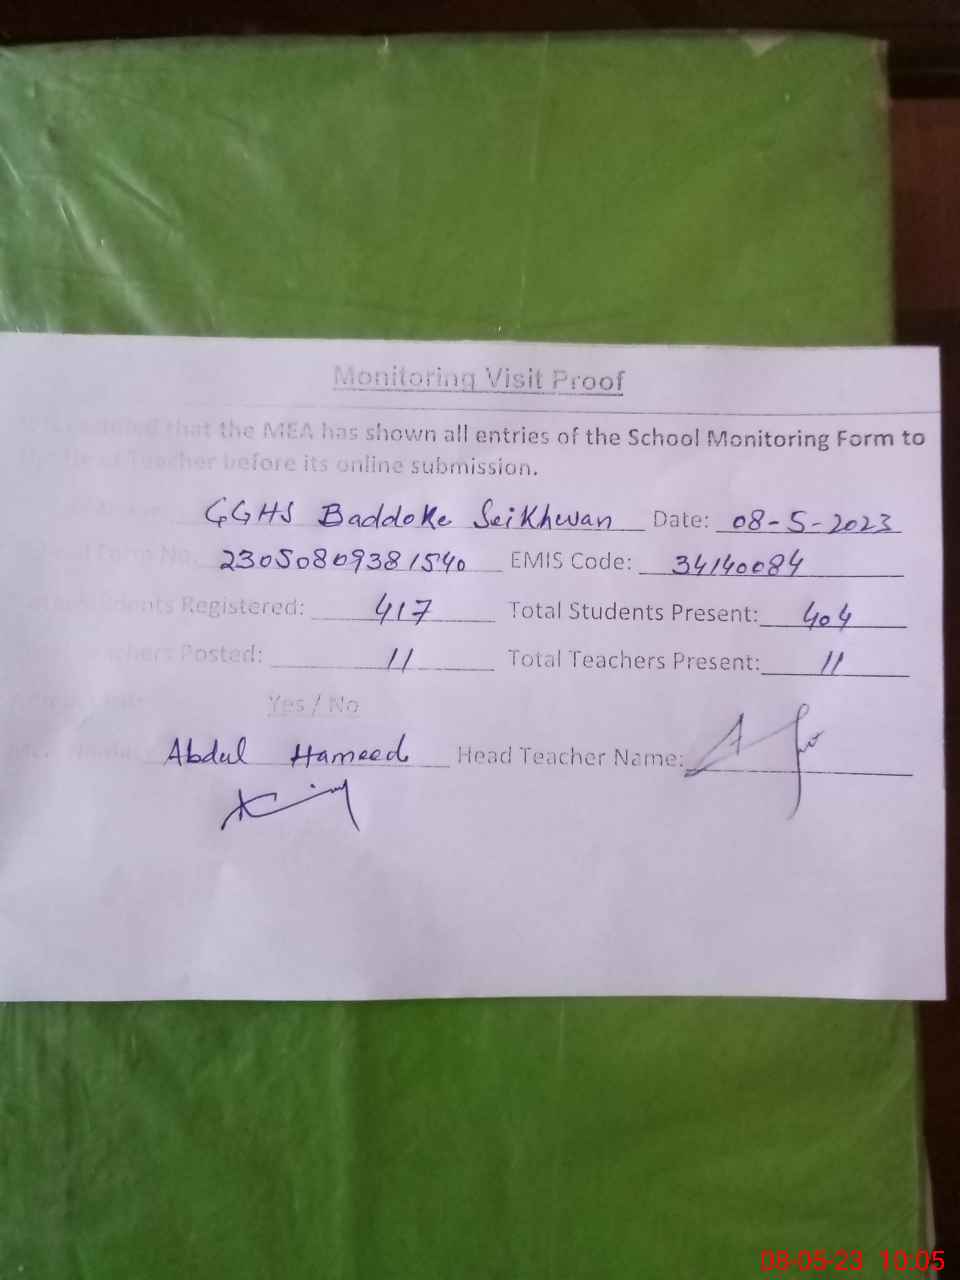 Monitoring Visit Proof
that the MEA has shown all entries of the School Monitoring Form to
Teacher before its online submission.
GGHS Baddoke Seikhwan Date: 08-5-2023
Form No. 23050809381540 EMIS Code: 34140084
Students Registered: 417 Total Students Present: 404
Teachers Posted: 11 Total Teachers Present: 11
Yes / No
Abdul Hameed Head Teacher Name:
08-05-23 10:05